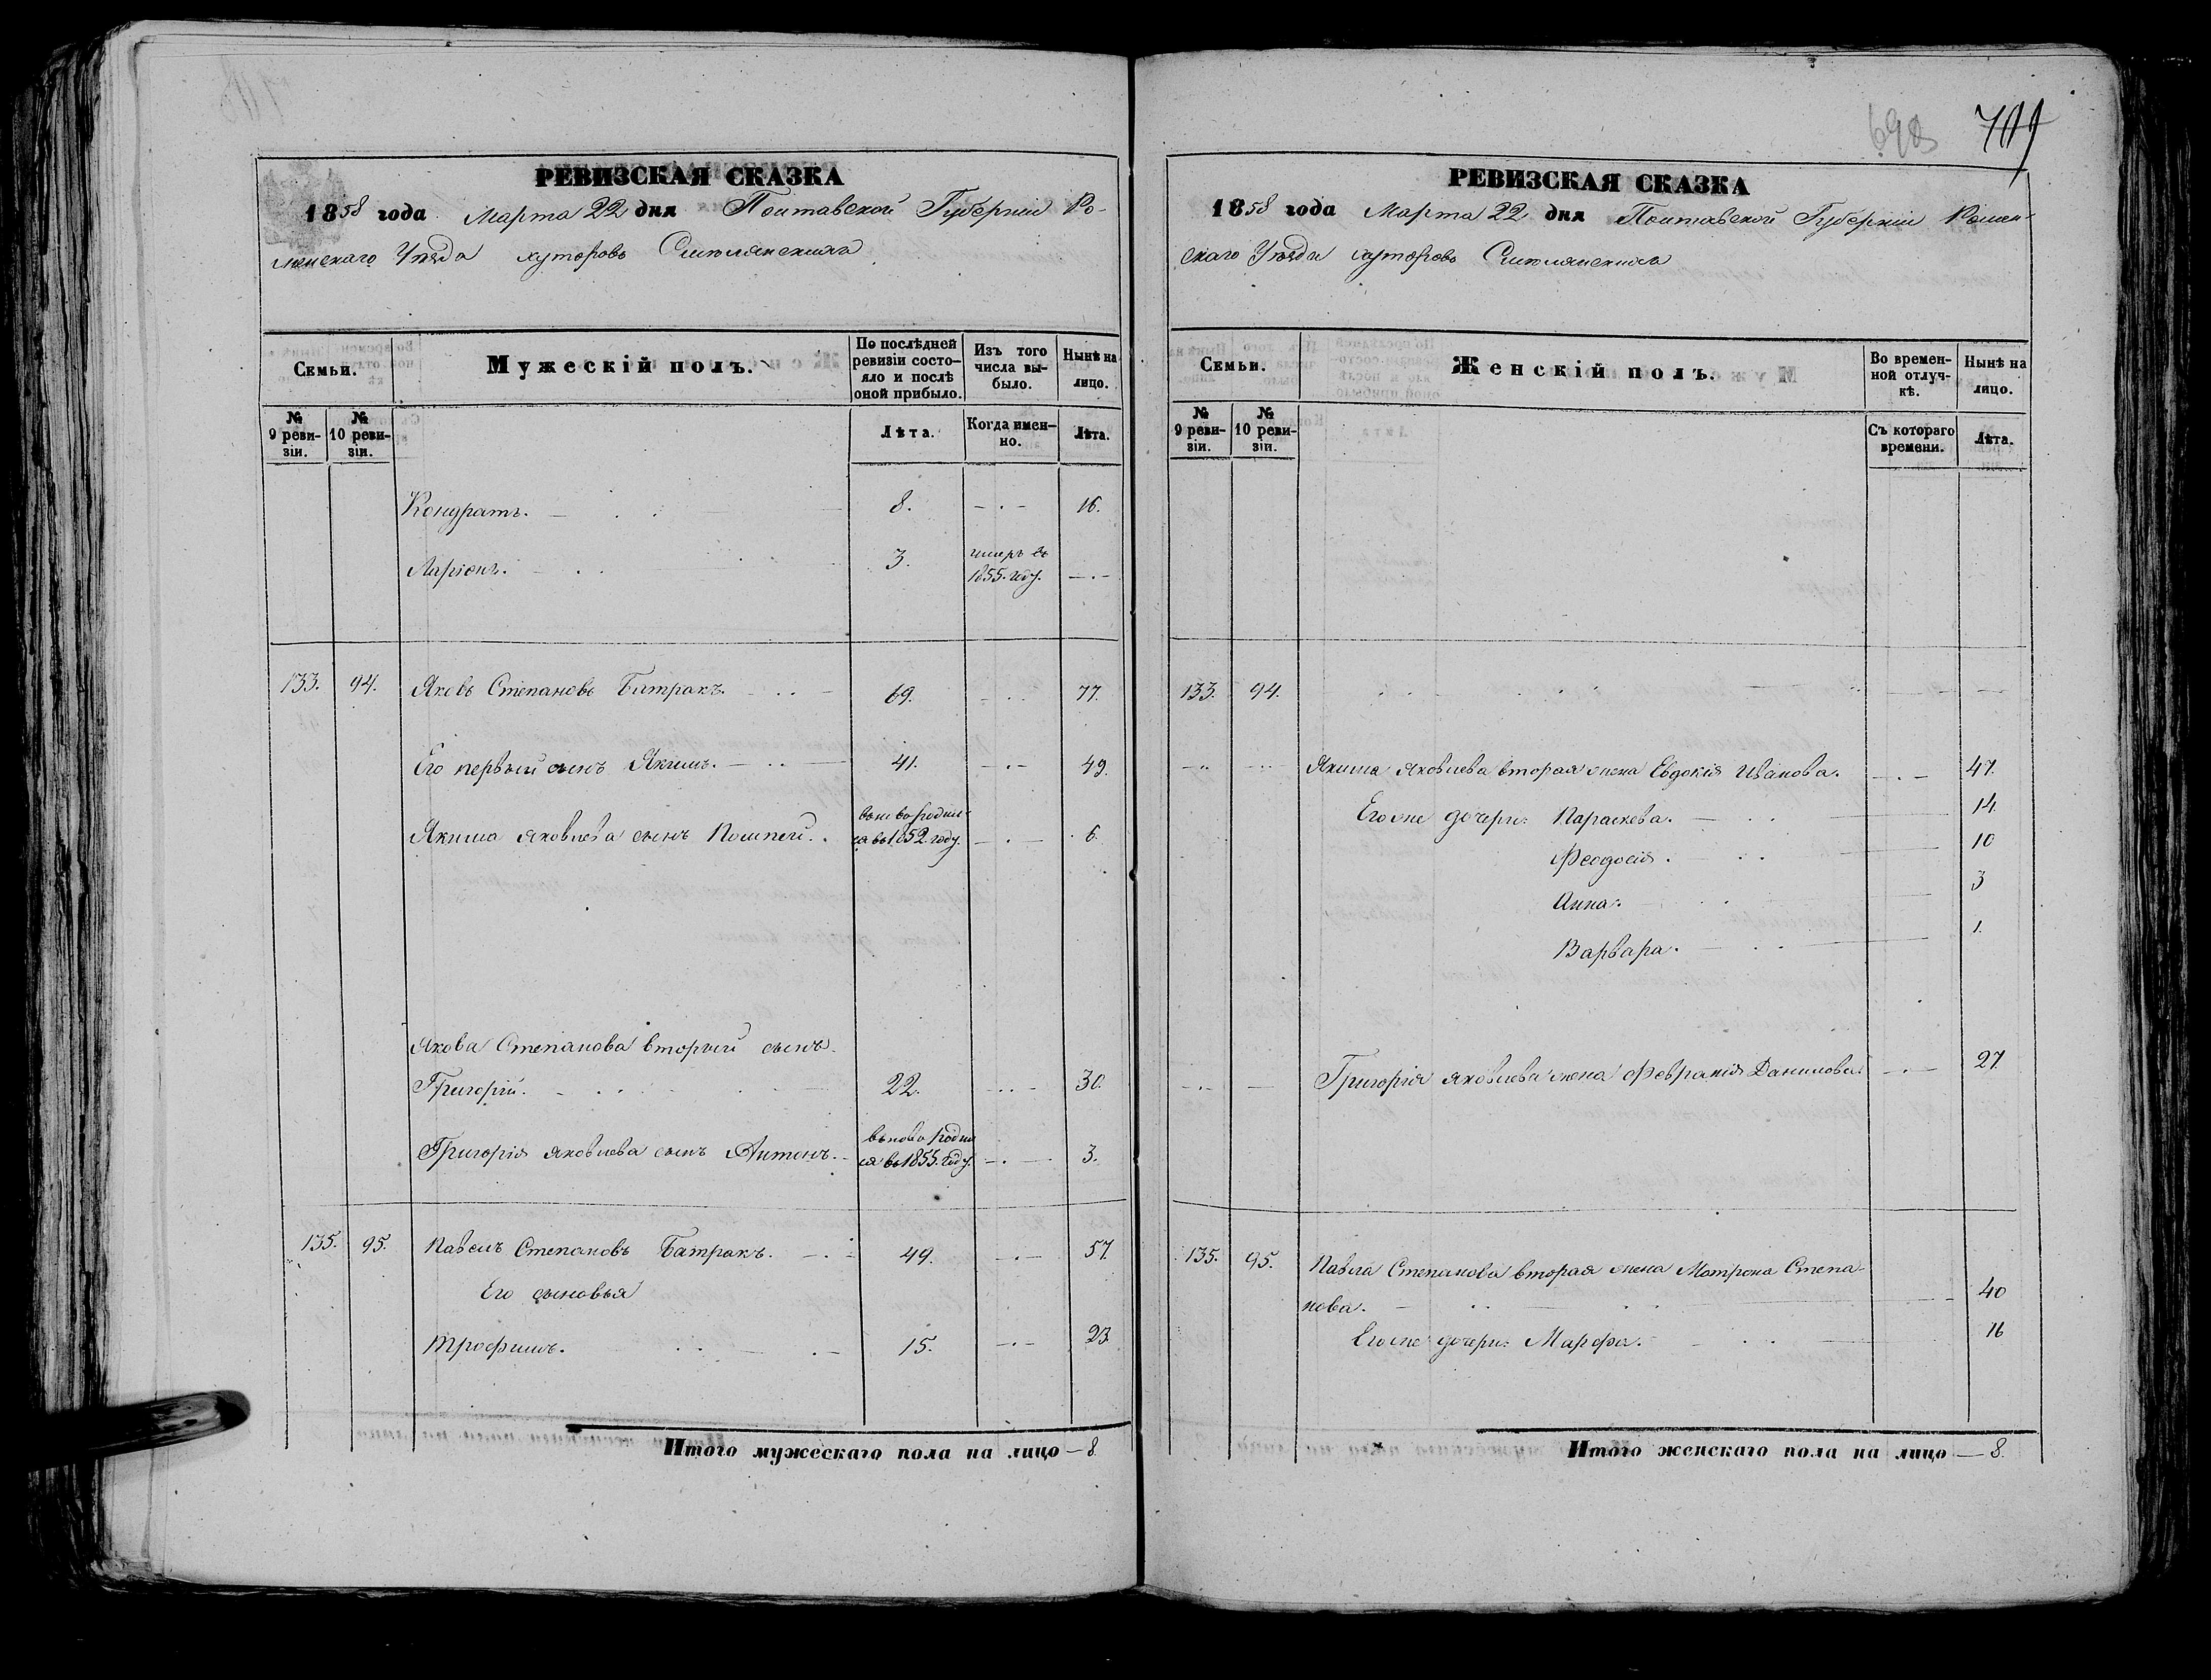 698 701
РЕВИЗСКАЯ СКАЗКА
1858 года Марта 22 дня Полтавской Губерніи Ро-
менскаго Уѣзда хуторовъ Смѣлянскихъ
Семьи.
№ 9 реви-зіи.
№ 10 реви-зіи.
Мужескій полъ.
По послѣдней ревизіи состо-яло и послѣ оной прибыло.
Изъ того числа вы-было.
Нынѣ на лицо.
Лѣта.
Когда имен-но.
Лѣта.
Кондратъ. 8. 16.
Ларіонъ. 3. умеръ въ
1855. году.
133. 94. Яковъ Степановъ Батракъ. 69. 77.
Его первый сынъ Якимъ. 41. 49.
Якима Яковлева сынъ Помпей. вновь родил-
ся въ 1852. году. 6.
Якова Степанова вторый сынъ
Григорій. 22. 30.
Григорія Яковлева сынъ Антонъ. вново родил
ся въ 1855. году. 3.
135. 95. Павелъ Степановъ Батракъ. 49. 57.
Его сыновья
Трофимъ. 15. 23.
Итого мужескаго пола на лицо 8.
РЕВИЗСКАЯ СКАЗКА
1858 года Марта 22 дня Полтавской Губерніи Ромен-
скаго Уѣзда хуторовъ Смѣлянскихъ
Семьи.
№ 9 реви-зіи.
№ 10 реви-зіи.
Женскій полъ.
Во времен-ной отлуч-кѣ.
Нынѣ на лицо.
Съ котораго времени.
Лѣта.
133. 94.
Якима Яковлева вторая жена Евдокія Иванова. 47.
Его же дочери: Параскева. 14.
Феодосія. 10
Анна. 3
Варвара. 1.
Григорія Яковлева жена Февранія Данилова. 27.
135. 95. Павла Степанова вторая жена Матрона Степа-
нова. 40
Его же дочери: Марфа. 16
Итого женскаго пола на лицо 8.